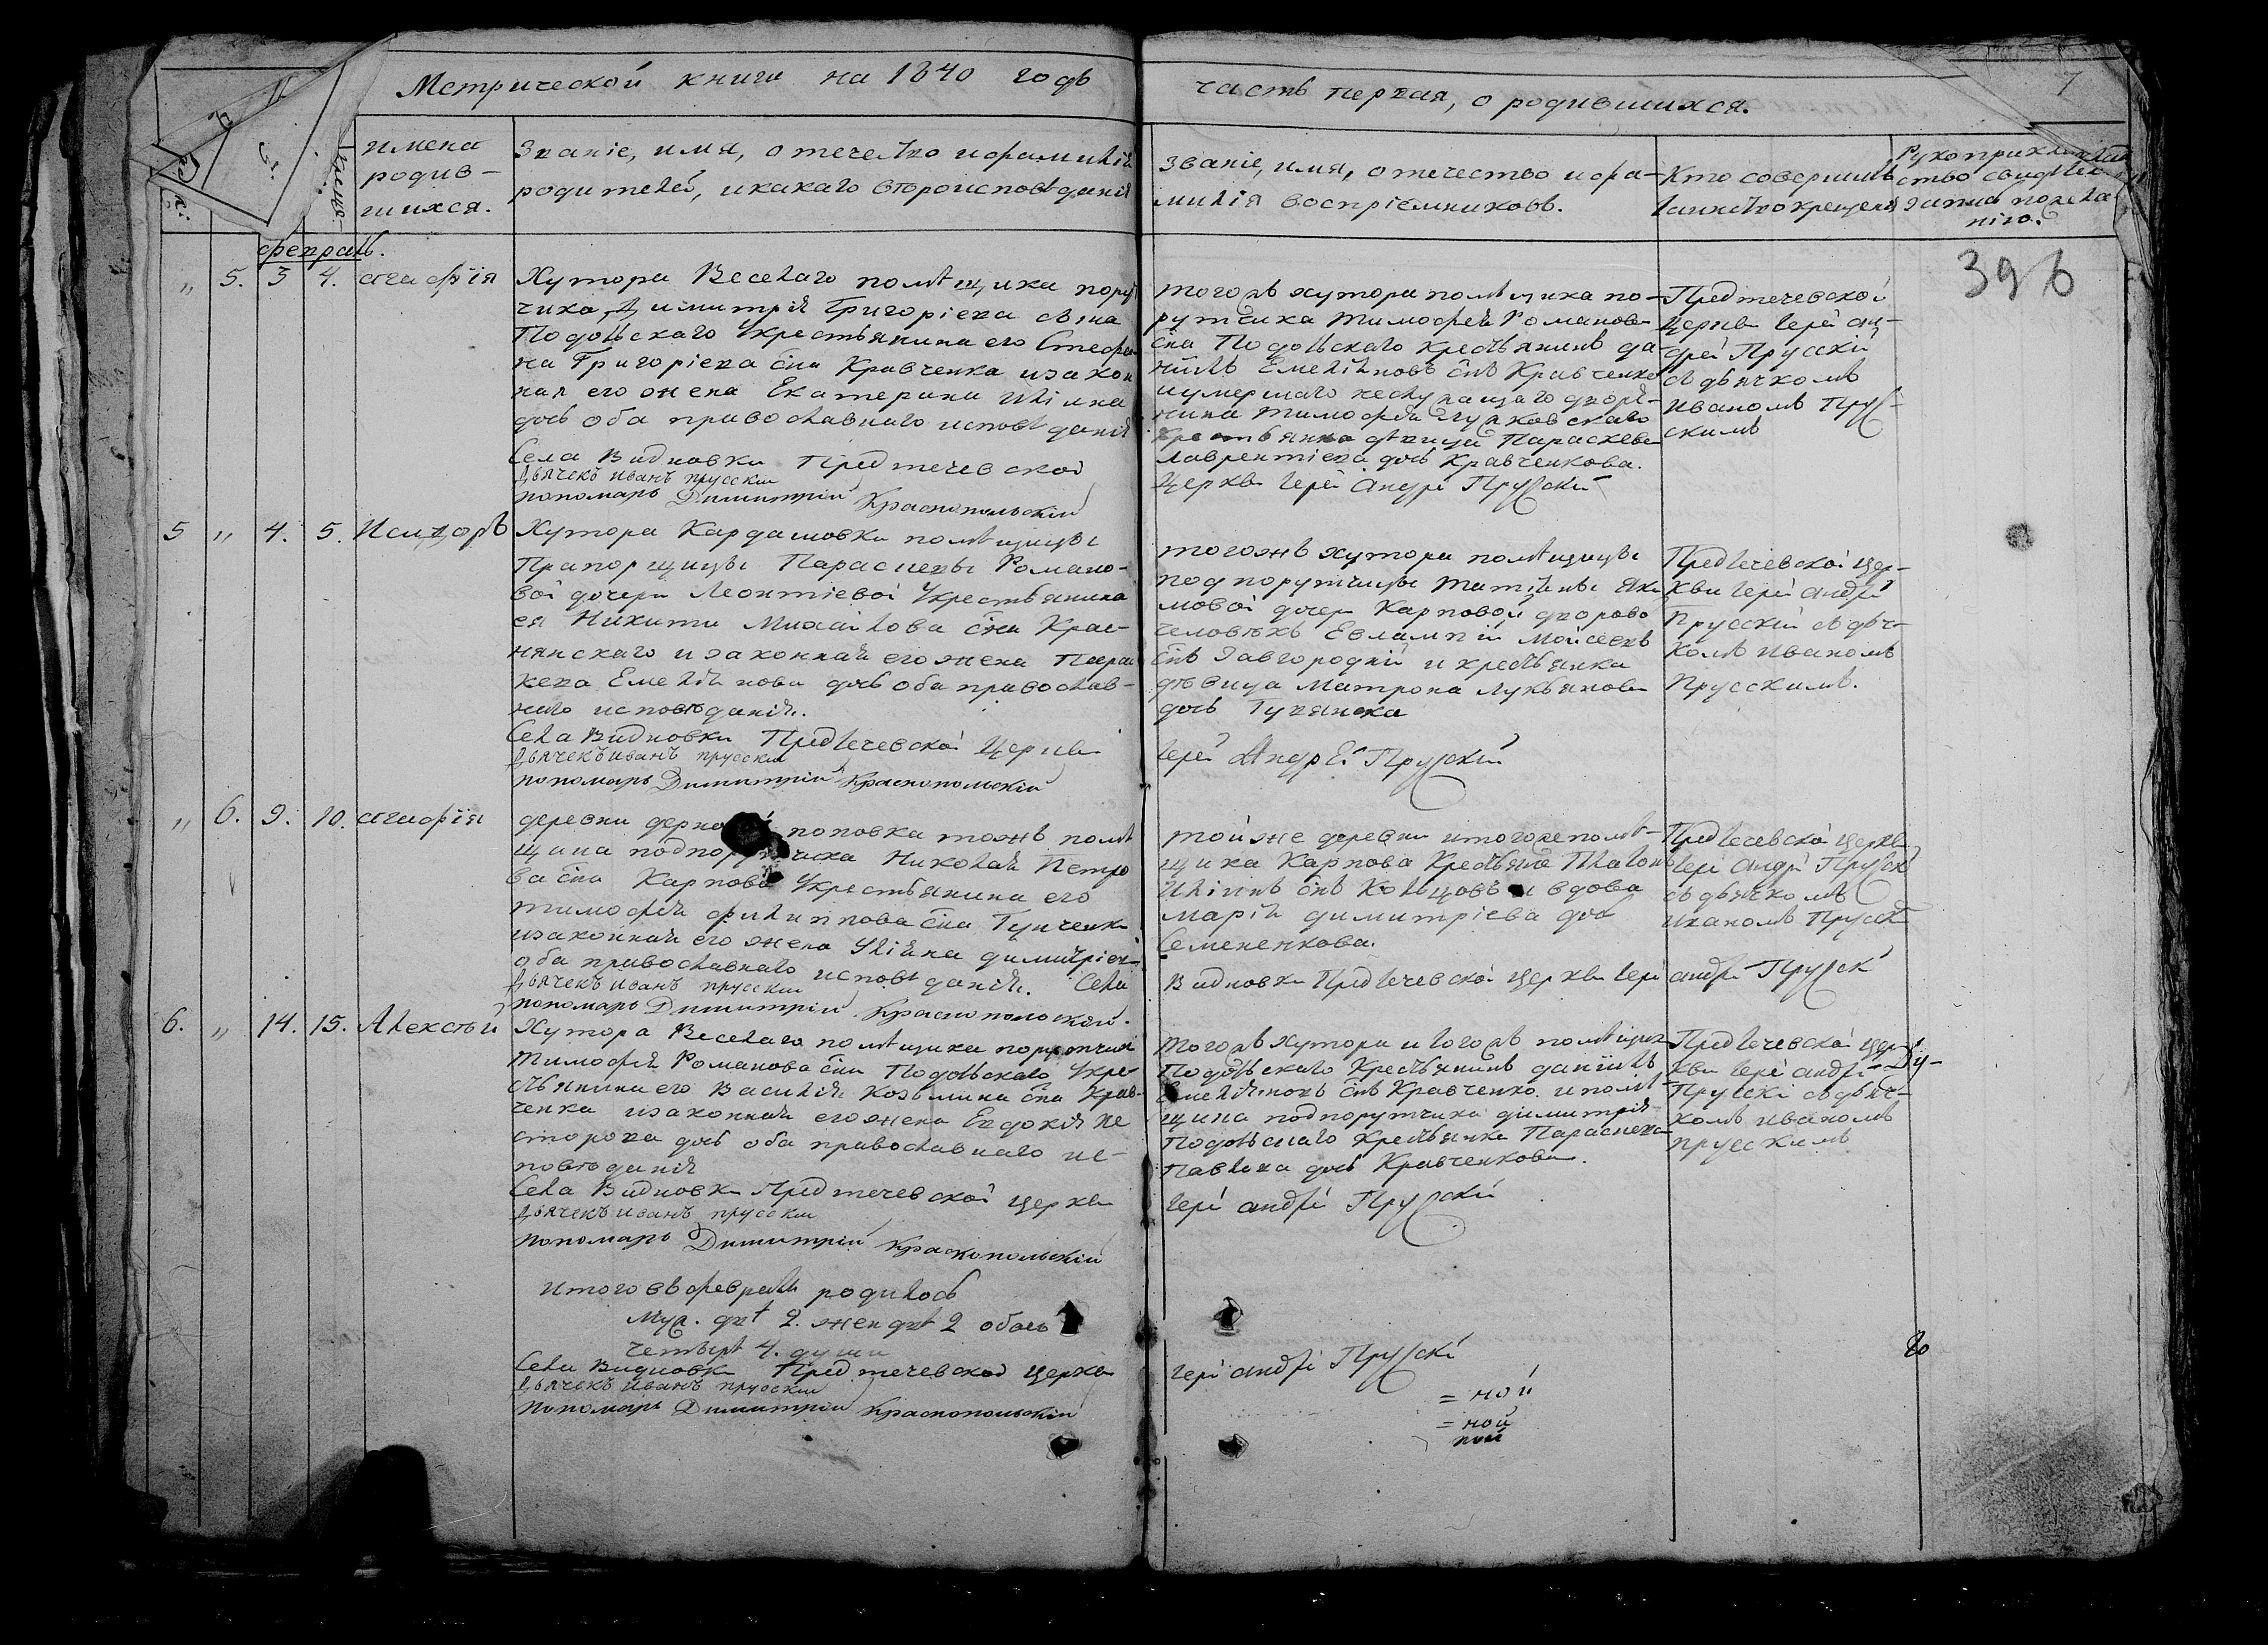 Метрической книги на 1840 годъ
часть первая, о родившихся.
7
имена
родив-
шихся.
Званіе, имя, отечество и фамилія
родителей, и какаго вѣроисповѣданія
Званіе, имя, отечество и фа-
милія воспріемниковъ.
Кто совершилъ
таинство крещенія
Рукоприклад
ство свидѣтел
записи по жела
нію.
396
февраль.
" 5. 3 4. Агафія
Хутора Веселаго помѣщика пору
чика Димитрія Григоріева сына
Подольскаго крестьянина его Стефа
на Григоріева сна Кравченка и закон
ная его жена Екатерина Иліина
дочь оба православнаго исповѣданія
Села Видновки Предтечевской
Дьячекъ Иванъ Прусскій
пономарь Димитрій Краснопольскій
тогожъ хутора помѣщика по-
рутчика Тимофея Романова
сна Подольскаго крестьянинъ да-
ніилъ Емеліяновъ снъ Кравченко
и умершаго
Тимофея
крестьянка дѣвица Параскева
Лаврентіева дочь Кравченкова.
Церкви Іерей Андрей Прусскій
Предтечевской
Церкви Іерей Ан-
дрей Прусскій
съ дьячкомъ
Иваномъ Прус-
скимъ
5 " 4. 5. Исидоръ
Хутора Кардашовки помѣщицы
Прапорщицы Параскевы Романо-
вой дочери Леонтіевой крестьянина
ея Никиты Михаилова сна Крас-
нянскаго и законная его жена Парас
кева Емеліянова дочь оба православ-
наго исповѣданія.
Села Видновки Предтечевской Церкви
Дьячекъ Иванъ Прусскій
пономарь Димитрій Краснопольскій
тогожъ хутора помѣщицы
подпорутчицы Татіяны Яки
мовой дочери Карповой дворово
человѣкъ Евлампій Мойсеевъ
снъ Завгородній и крестьянка
дѣвица Матрона Лукьянова
дочь
Іерей Андрей Прусскій
Предтечевской Цер-
кви Іерей Андрей
Прусскій съ дьяч-
комъ Иваномъ
Прусскимъ.
" 6. 9. 10. Агафія
деревни поповка тожъ помѣ
щика подпорутчика Николая Петро
ва сна Карпова крестьянина его
Тимофея Филиппова сна
и законная его жена Уліяна Димитріев-
оба православнаго исповѣданія. Села
Дьячекъ Иванъ Прусскій
пономарь Димитрій Краснопольскій.
тойже деревни и тогоже помѣ-
щика Карпова Платонъ
Иліинъ снъ и вдова
Марія Димитріева дочь
Семененкова.
Видновки Предтечевской церкви Іерей Андрей Прусскій
Предтечевской Церкви
Іерей Андрей Прусскій
съ дьячкомъ
Иваномъ Прусск
6. " 14. 15. Алексѣй
Хутора Веселаго помѣщика порутчика
Тимофея Романова сна Подольскаго кре-
стьянина его Василія Козьмина сна Крав-
ченка и законная его жена Евдокія Не
сторова дочь оба православнаго ис-
повѣданія
Села Видновки Предтечевской церкви
Дьячекъ Иванъ Прусскій
пономарь Димитрій Краснопольскій
тогожъ хутора и тогожъ помѣщика
Подольскаго крестьянинъ Даніилъ
Емеліяновъ снъ Кравченко и помѣ-
щика подпорутчика Димитрія
Подольскаго крестьянка Параскева
Павлова дочь Кравченкова.
Іерей Андрей Прусскій
Предтечевской Цер-
кви Іерей Андрей
Прусскій съ дьяч-
комъ Иваномъ
Прусскимъ
Итого въ февралѣ родилось
Муж. два 2. жен двѣ 2 обоего
четыре 4. души
Села Видновки Предтечевской церкви
Дьячекъ Иванъ Прусскій
пономарь Димитрій Краснопольскій
Іерей Андрей Прусскій
= ной
= ной
ной